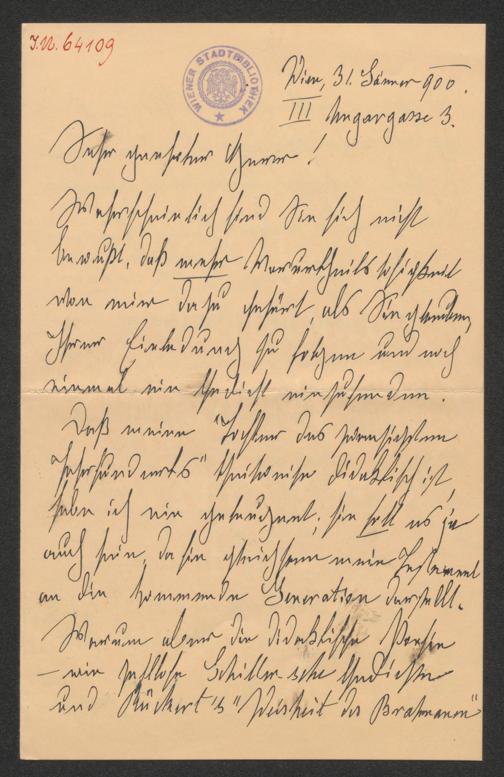 J.N. 64109
WIENER STADTBIBLIOTHEK
Wien, 31. Jänner 900.
III Ungargasse 3.
Sehr geehrter Herr!
Wahrscheinlich sind Sie sich nicht
bewußt, daß mehr Vorurtheilslosigkeit
von mir dazu gehört, als Sie glauben,
Ihrer Einladung zu folgen und noch
einmal ein Gedicht einzusenden.
Daß meine "Tochter des zwanzigsten
Jahrhunderts" theilweise didaktisch ist,
habe ich nie geleugnet; sie soll es ja
auch sein, da sie gleichsam mein Testament
an die kommende Generation darstellt.
Warum aber die didaktische Poesie
– wie zahllose Schiller'sche Gedichte
und Rückert's "Weisheit des Brahmanen"